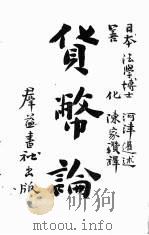 日本 法學博士 河津暹述
善化 陳家瓚譯
貨幣論
羣益書社出版